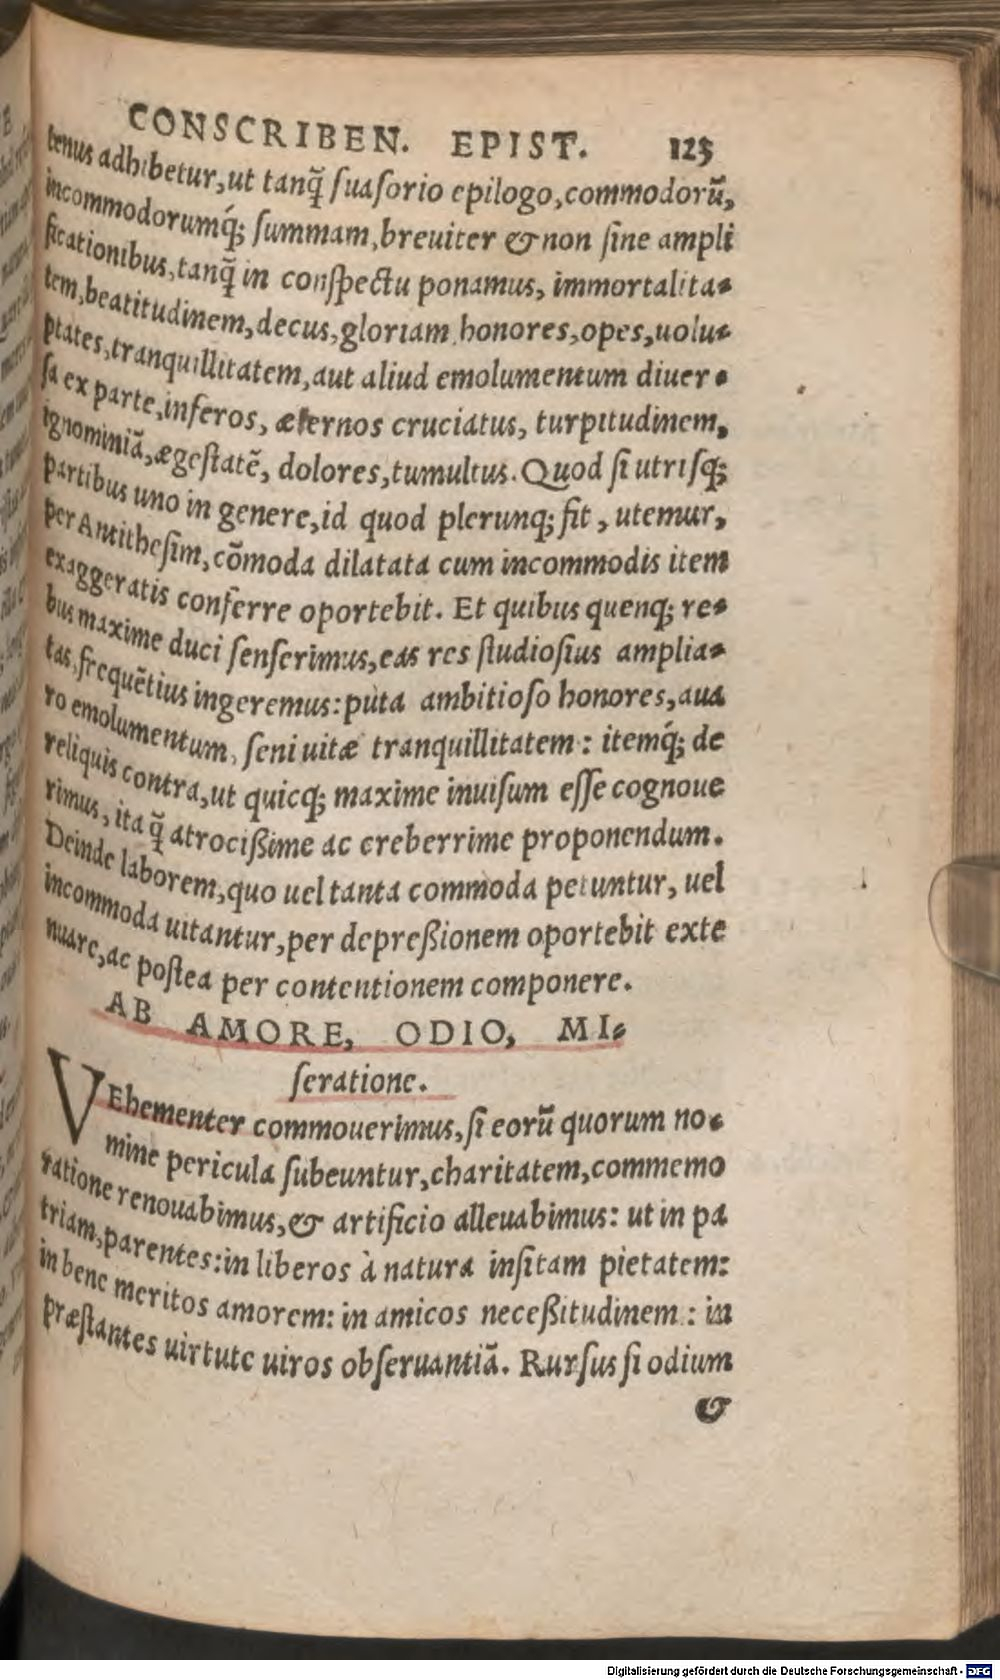 CONSCRIBEN. EPIST. 125
tenus adhibetur, ut tanq̃ ſuaſorio epilogo, commodorũ,
incommodorumq́; ſummam, breuiter & non ſine ampli
ficationibus, tanq̃ in conſpectu ponamus, immortalita-
tem, beatitudinem, decus, gloriam, honores, opes, uolu-
ptates, tranquillitatem, aut aliud emolumentum diuer-
ſa ex parte, inferos, æternos cruciatus, turpitudinem,
ignominiã, ægeſtatẽ, dolores, tumultus. Quod ſi utriſq;
partibus uno in genere, id quod plerunq; fit, utemur,
per Antitheſim, cõmoda dilatata cum incommodis item
exaggeratis conferre oportebit. Et quibus quenq; re-
bus maxime duci ſenſerimus, eas res ſtudioſius amplia-
tas, frequẽtius ingeremus: puta ambitioſo honores, aua
ro emolumentum, ſeni uitæ tranquillitatem: itemq́; de
reliquis contra, ut quicq; maxime inuiſum eſſe cognoue
rimus, ita q̃ atrocißime ac creberrime proponendum.
Deinde laborem, quo uel tanta commoda petuntur, uel
incommoda uitantur, per depreßionem oportebit exte
nuare, ac poſtea per contentionem componere.
AB AMORE, ODIO, MI-
ſeratione.
VEhementer commouerimus, ſi eorũ quorum no-
mine pericula ſubeuntur, charitatem, commemo
ratione renouabimus, & artificio alleuabimus: ut in pa
triam, parentes: in liberos à natura inſitam pietatem:
in bene meritos amorem: in amicos neceßitudinem: in
præſtantes uirtute uiros obſeruantiã. Rurſus ſi odium
&
Digitalisierung gefördert durch die Deutsche Forschungsgemeinschaft - DFG